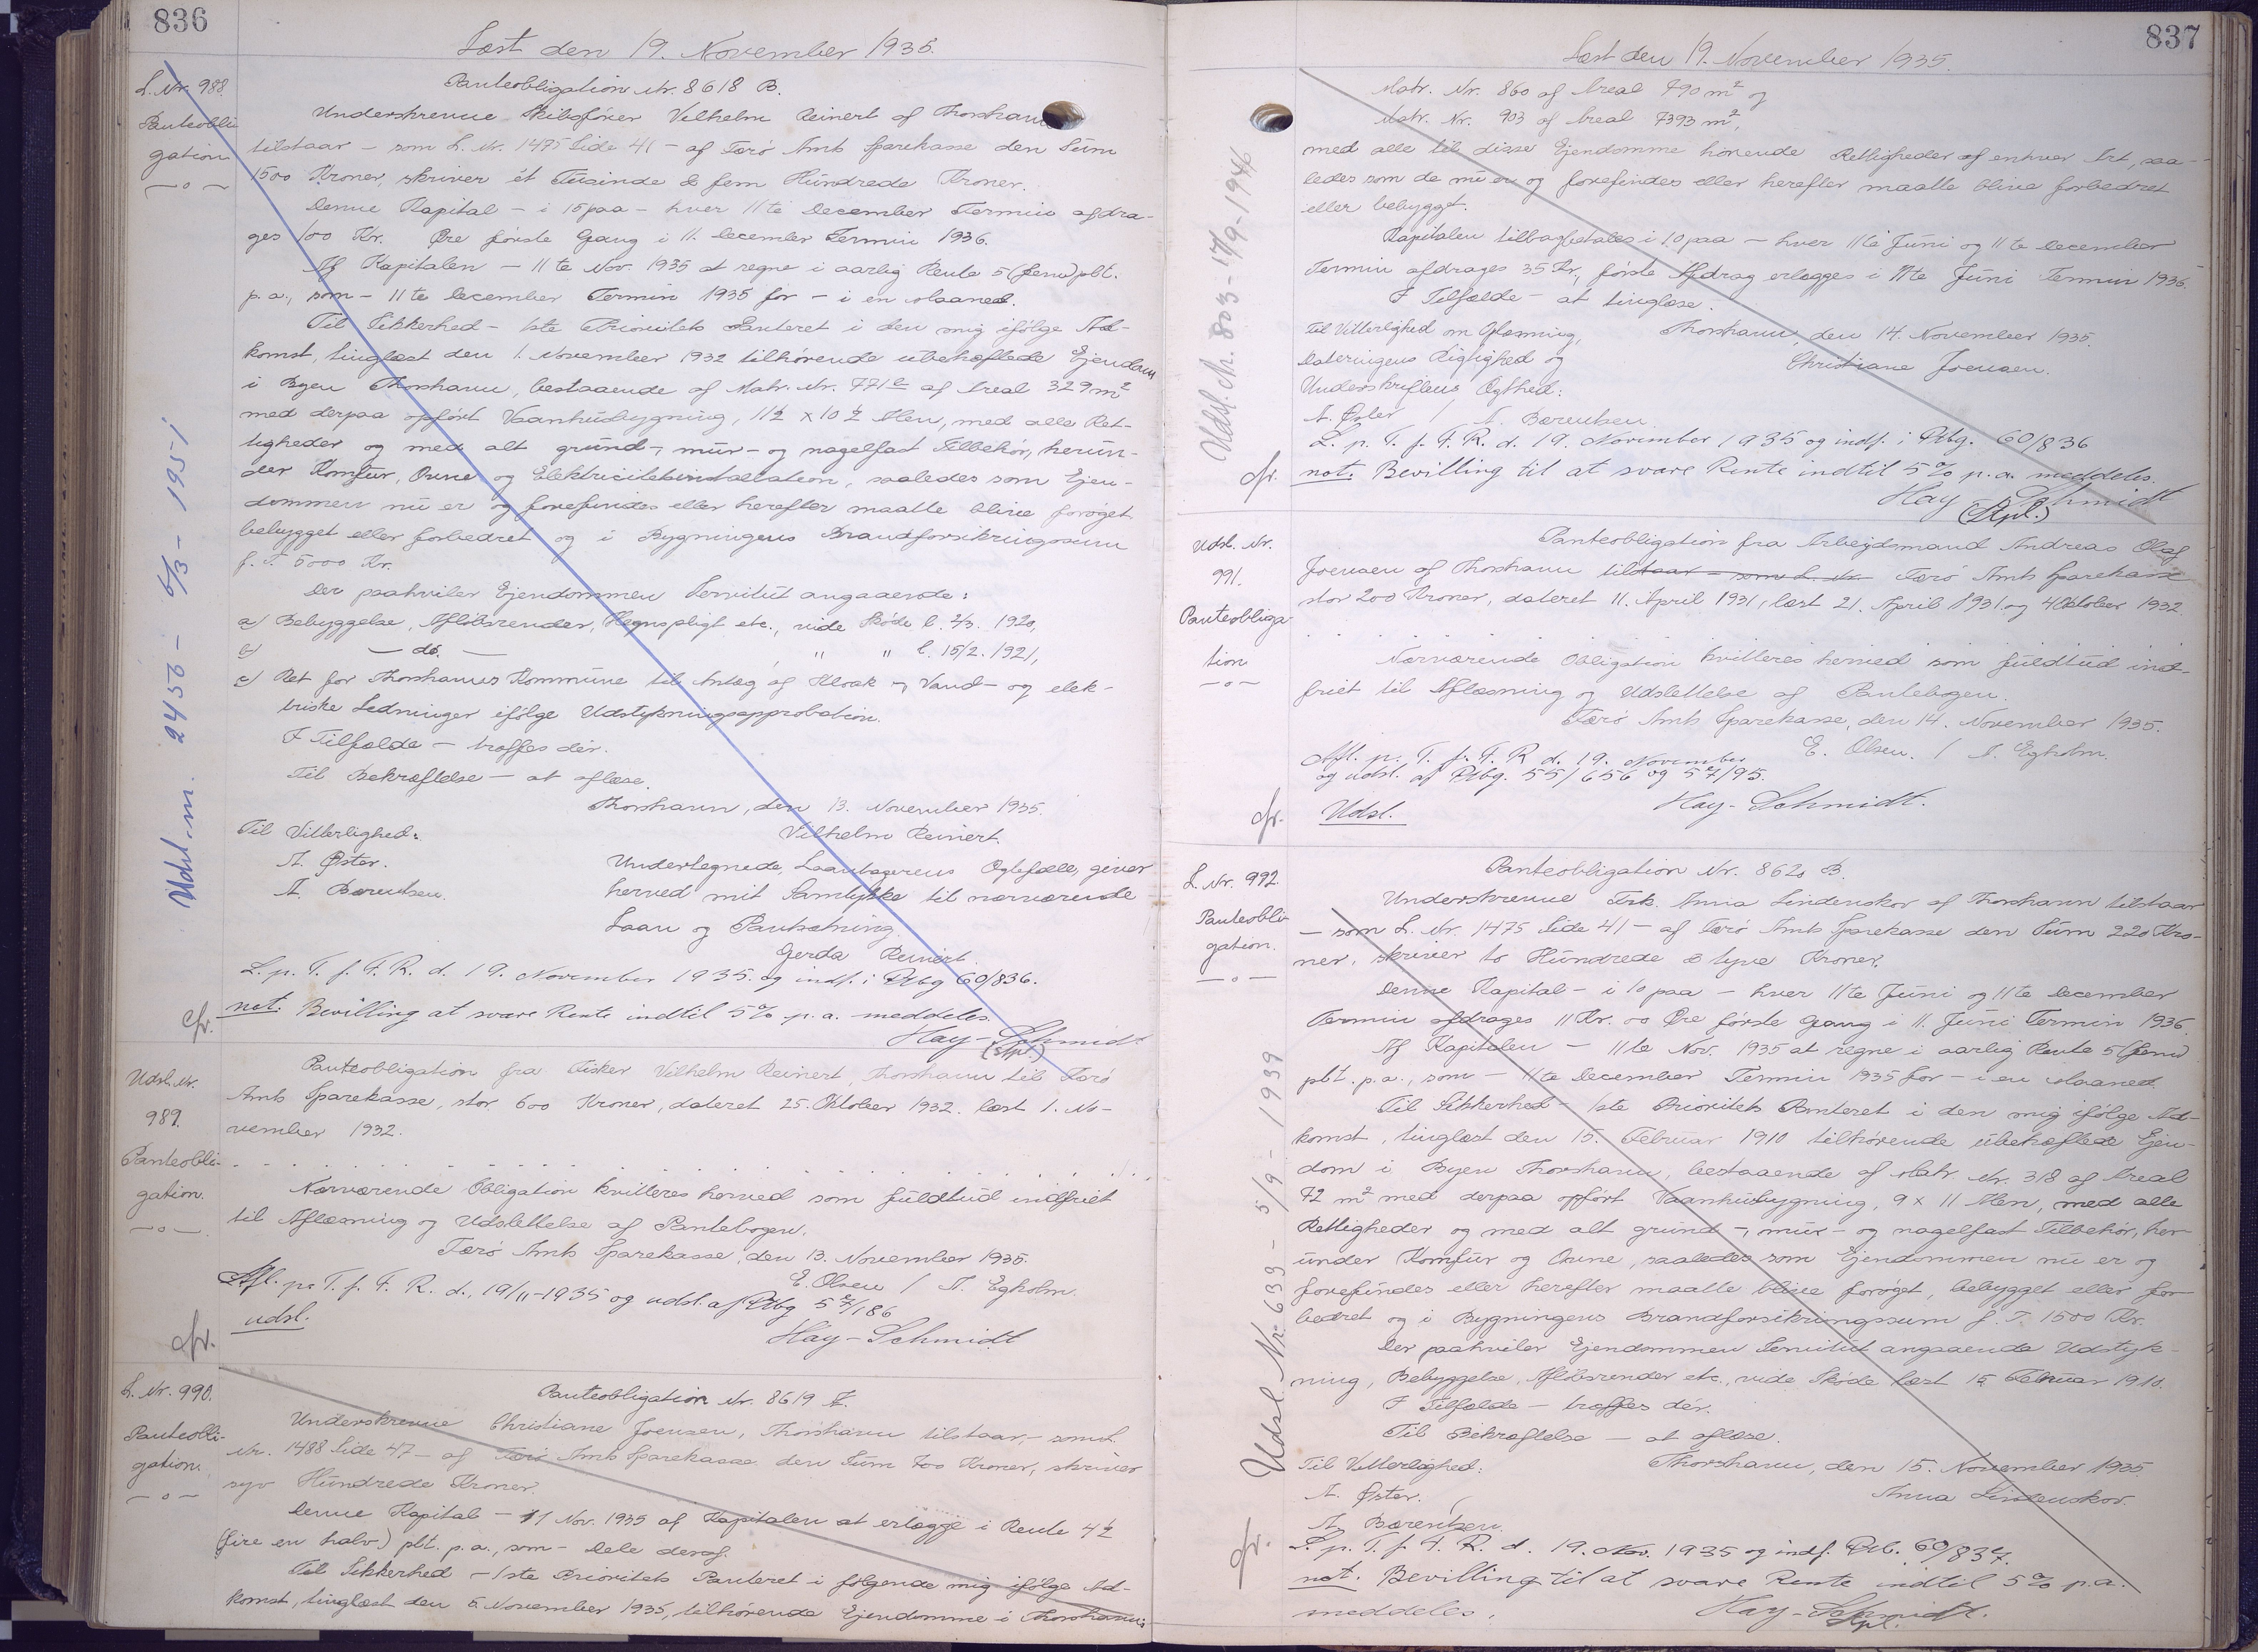 836
Læst den 19. November 1935.
L. Nr. 988.
Panteobli-
gation
—o—
Panteobligation Nr. 8618 B.
Underskrevne Skibsfører Vilhelm Reinert af Thorshavn
tilstaar — som L. Nr. 1475 Side 41 — af Færø Amts Sparekasse den Sum
1500 Kroner, skriver ét Tusinde & fem Hundrede Kroner.
Denne Kapital — i 15 paa — hver 11te December Termin afdra-
ges 100 Kr. Øre første Gang i 11. December Termin 1936.
Af Kapitalen — 11te Nov. 1935 at regne i aarlig Rente 5 (fem) pCt.
p.a., som — 11te December Termin 1935 for — i en Maaned.
Til Sikkerhed — 1ste Prioritets Panteret i den mig ifølge Ad-
komst, tinglæst den 1. November 1932 tilhørende ubehæftede Ejendom
i Byen Thorshavn, bestaaende af Matr. Nr. 771 e af Areal 329 m²
med derpaa opført Vaanhusbygning, 11½ x 10½ Alen, med alle Ret-
tigheder og med alt grund-, mur- og nagelfast Tilbehør, herun-
der Komfur, Ovne og Elektricitetsinstallation, saaledes som Ejen-
dommen nu er og forefindes eller herefter maatte blive forøget
bebygget eller forbedret og i Bygningens Brandforsikringssum
f. T. 5000 Kr.
Der paahviler Ejendommen Servitut angaaende:
a) Bebyggelse, Afløbsrender, Hegnspligt etc., vide Skøde l. 2/3. 1920,
b) — do. — " " l. 15/2. 1921,
c) Ret for Thorshavns Kommune til Anlæg af Kloak -, Vand- og elek-
triske Ledninger ifølge Udstykningsapprobation.
I Tilfælde — træffes dér.
Til Bekræftelse — at aflæse.
Thorshavn, den 13. November 1935.
Til Vitterlighed: Vilhelm Reinert.
A. Øster.
A. Bærentsen.
Undertegnede, Laantagerens Ægtefælle, giver
herved mit Samtykke til nærværende
Laan og Pantsætning.
Gerda Reinert.
L. p. T. f. F. R. d. 19. November 1935. og indf. i Ptbg 60/836.
cfr. not. Bevilling at svare Rente indtil 5% p. a. meddeles.
Hay-Schmidt
(Stpl.)
Udsl. m. 2456 - 6/3 - 1951
Udsl. Nr.
989.
Panteobli-
gation.
—o—
Panteobligation fra Fisker Vilhelm Reinert, Thorshavn til Færø
Amts Sparekasse, stor 600 Kroner, dateret 25. Oktober 1932. læst 1. No-
vember 1932.
Nærværende Obligation kvitteres herved som fuldtud indfriet
til Aflæsning og Udslettelse af Pantebogen.
Færø Amts Sparekasse, den 13. November 1935.
E. Olsen / A. Egholm.
Afl. p. T. f. F. R. d. 19/11-1935 og udsl. af Ptbg 57/186
cfr. udsl.
Hay-Schmidt
L. Nr. 990.
Panteobli-
gation.
—o—
Panteobligation Nr. 8619 A.
Underskrevne Christiane Joensen, Thorshavn tilstaar, — som L.
Nr. 1488 Side 47 — af Færø Amts Sparekasse den Sum 700 Kroner, skriver
syv Hundrede Kroner.
Denne Kapital — 11 Nov. 1935 af Kapitalen at erlægge i Rente 4½
(fire en halv) pCt. p.a., som — Dele deraf.
Til Sikkerhed — 1ste Prioritets Panteret i følgende mig ifølge Ad-
komst, tinglæst den 5. November 1935, tilhørende Ejendomme i Thorshavn:
837
Læst den 19. November 1935.
Matr. Nr. 860 af Areal 790 m² og
Matr. Nr. 903 af Areal 7393 m²,
med alle til disse Ejendomme hørende Rettigheder af enhver Art, saa-
ledes som de nu er og forefindes eller herefter maatte blive forbedret
eller bebygget.
Kapitalen tilbagebetales i 10 paa — hver 11te Juni og 11te December
Termin afdrages 35 Kr., første Afdrag erlægges i 11te Juni Termin 1936.
I Tilfælde — at tinglæse.
Til Vitterlighed om Oplæsning, Thorshavn, den 14. November 1935.
Dateringens Rigtighed og Christiane Joensen.
Underskriftens Ægthed:
A. Øster / A. Bærentsen
L. p. T. f. F. R. d. 19. November 1935 og indf. i Ptbg. 60/836
cfr. not. Bevilling til at svare Rente indtil 5% p. a. meddeles.
Hay-Schmidt
(Stpl.)
Udsl. Nr. 803 - 17/9 - 1946
Udsl. Nr.
991.
Panteobliga-
tion.
—o—
Panteobligation fra Arbejdsmand Andreas Olaf
Joensen af Thorshavn tilstaar — som L. Nr. Færø Amts Sparekasse
stor 200 Kroner, dateret 11. April 1931, læst 21. April 1931. og 4 Oktober 1932.
Nærværende Obligation kvitteres herved som fuldtud ind-
friet til Aflæsning og Udslettelse af Pantebogen.
Færø Amts Sparekasse, den 14. November 1935.
E. Olsen. / A. Egholm.
Afl. p. T. f. F. R d. 19. November
og udsl. af Ptbg. 55/656 og 57/95.
cfr. Udsl.
Hay-Schmidt.
L. Nr. 992.
Panteobli-
gation.
—o—
Panteobligation Nr. 8620 B.
Underskrevne Frk. Anna Lindenskov af Thorshavn tilstaar
— som L. Nr. 1475 Side 41 — af Færø Amts Sparekasse den Sum 220 Kro-
ner, skriver to Hundrede & tyve Kroner.
Denne Kapital — i 10 paa — hver 11te Juni og 11te December
Termin afdrages 11 Kr. 00 Øre første Gang i 11. Juni Termin 1936.
Af Kapitalen — 11te Nov. 1935 at regne i aarlig Rente 5 (fem)
pCt. p.a., som — 11te December Termin 1935 for — i en Maaned.
Til Sikkerhed — 1ste Prioritets Panteret i den mig ifølge Ad-
komst, tinglæst den 15. Februar 1910 tilhørende ubehæftede Ejen-
dom i Byen Thorshavn, bestaaende af Matr. Nr. 318 af Areal
72 m² med derpaa opført Vaanhusbygning, 9 x 11 Alen, med alle
Rettigheder og med alt grund-, mur- og nagelfast Tilbehør, her-
under Komfur og Ovne, saaledes som Ejendommen nu er og
forefindes eller herefter maatte blive forøget, bebygget eller for-
bedret og i Bygningens Brandforsikringssum f. T. 1500 Kr.
Der paahviler Ejendommen Servitut angaaende Udstyk-
ning, Bebyggelse, Afløbsrender etc., vide Skøde læst 15. Februar 1910.
I Tilfælde — træffes dér.
Til Bekræftelse — at aflæse.
Til Vitterlighed: Thorshavn, den 15. November 1935.
A. Øster. / Anna Lindenskov.
A. Bærentsen.
L. p. T. f. F. R. d. 19. Nov. 1935 og indf. Ptb. 60/837.
cfr. not. Bevilling til at svare Rente indtil 5% p.a.
meddeles. Hay-Schmidt.
Stpl.
Udsl. Nr. 639 - 5/9 - 1939